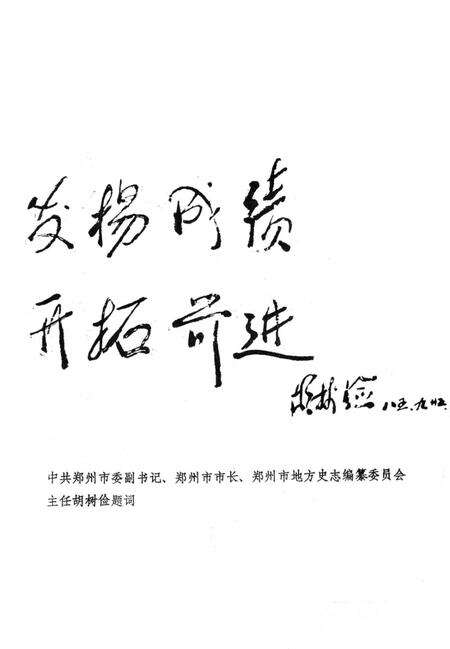 发揚成绩
开拓前进
胡树俭 八五.九.廿五.
中共郑州市委副书记、郑州市市长、郑州市地方史志编纂委员会
主任胡树俭题词